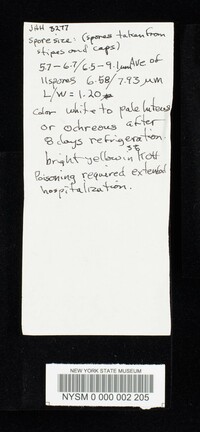 JHH 8277
spore size: (spores taken from
stipes and caps)
5.7-6.7/6.5-9.1µm Ave of
11 spores 6.58/7.93 µm
L/W = 1.20
Color white to pale luteus
or ochreous after
8 days refrigeration.
bright yellow in KOH
Poisoning required extended
hospitalization.
NEW YORK STATE MUSEUM
NYSM 0 000 002 205